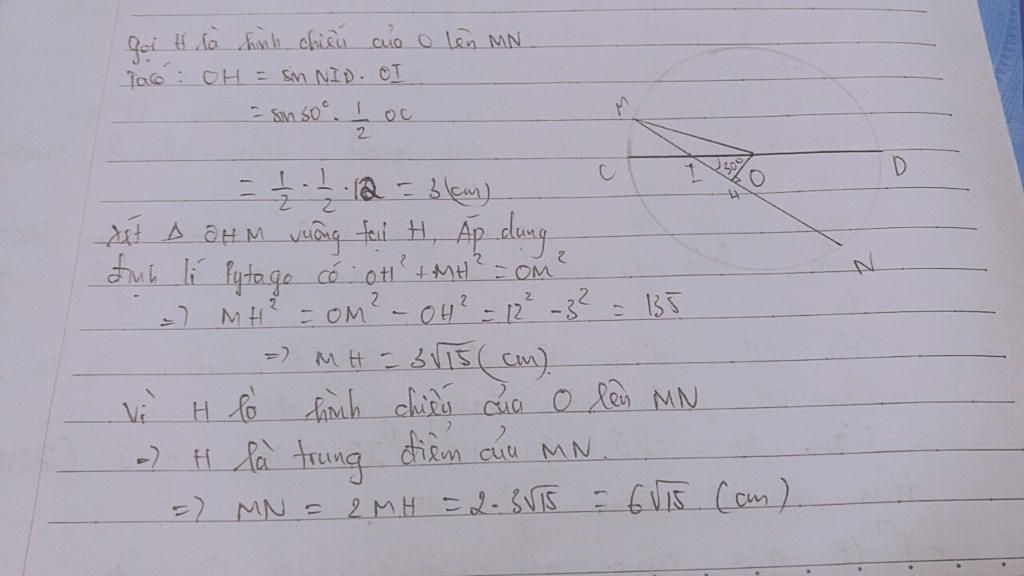 Gọi H là hình chiếu của O lên MN
Ta có: OH = sin NID . OI
= sin 30° . 1/2 OC
= 1/2 . 1/2 . 12 = 3 (cm)
Xét Δ OHM vuông tại H, Áp dụng
định lí Pytago có: OH² + MH² = OM²
=> MH² = OM² - OH² = 12² - 3² = 135
=> MH = 3√15 (cm).
Vì H là hình chiếu của O lên MN
=> H là trung điểm của MN.
=> MN = 2MH = 2.3√15 = 6√15 (cm)
M
C I 30° O D
H
N